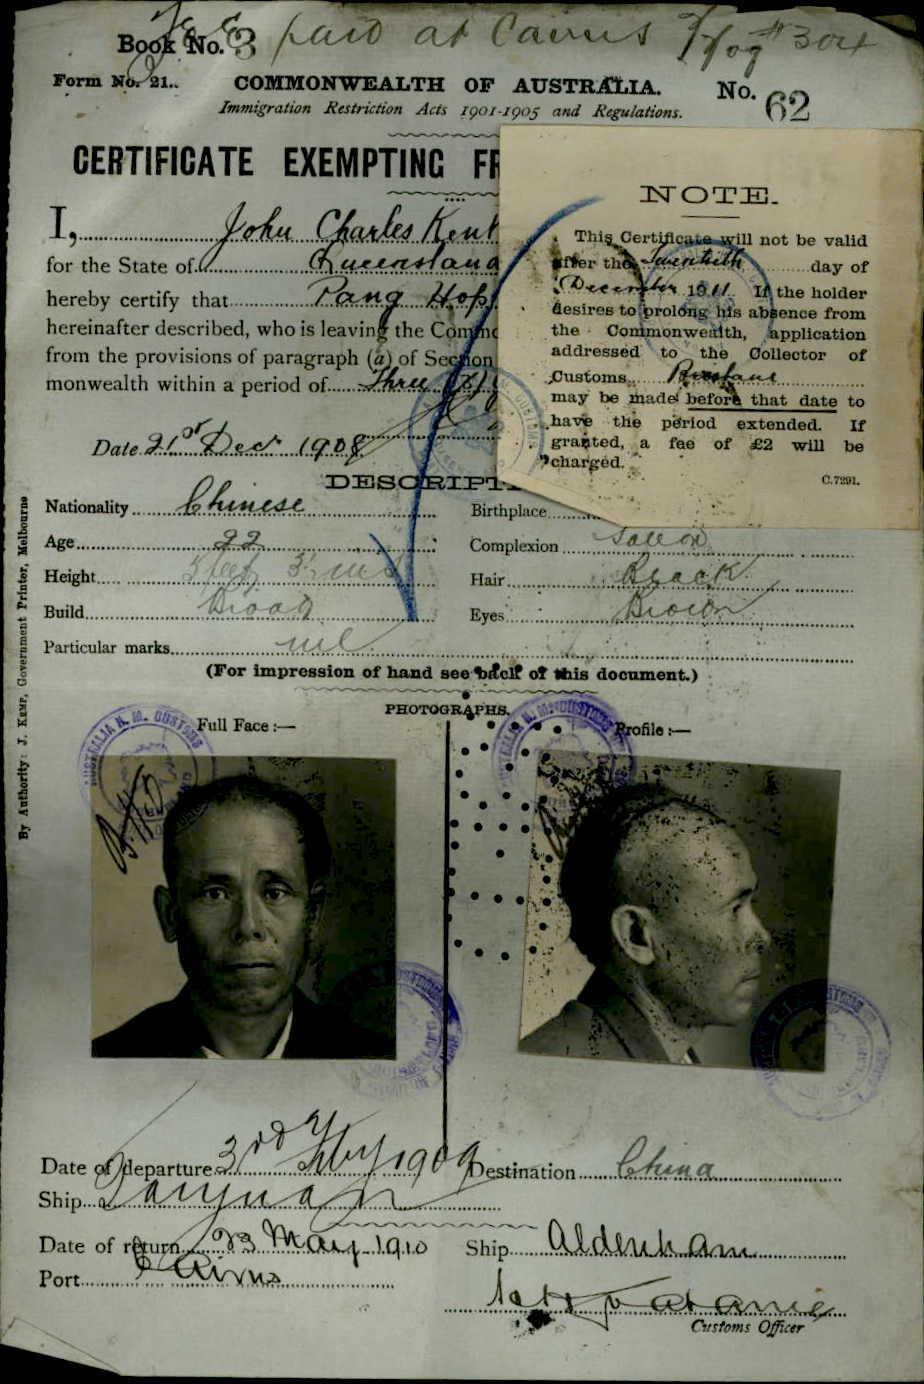 Book No. 3 paid at Cairns
Form No. 21. COMMONWEALTH OF AUSTRALIA. No. 62
Immigration Restriction Acts 1901-1905 and Regulations.
CERTIFICATE EXEMPTING FR
I, John Charles Kent
for the State of Queensland
hereby certify that Pang Hop
hereinafter described, who is leaving the Commo
from the provisions of paragraph (a) of Section
monwealth within a period of Three
Date 21st Decr 1908
NOTE.
This Certificate will not be valid
after the Twentieth day of
December 1911. If the holder
desires to prolong his absence from
the Commonwealth, application
addressed to the Collector of
Customs Brisbane
may be made before that date to
have the period extended. If
granted, a fee of £2 will be
charged.
C.7291.
DESCRIPTI
Nationality Chinese Birthplace
Age 22 Complexion Sallow
Height 5 feet 3½ ins Hair Black
Build Broad Eyes Brown
Particular marks nil
(For impression of hand see back of this document.)
PHOTOGRAPHS.
Full Face:— Profile:—
By Authority: J. Kemp, Government Printer, Melbourne
Date of departure 3rd Feby 1909 Destination China
Ship Taiyuan
Date of return 23 May 1910 Ship Aldenham
Port Cairns
Customs Officer